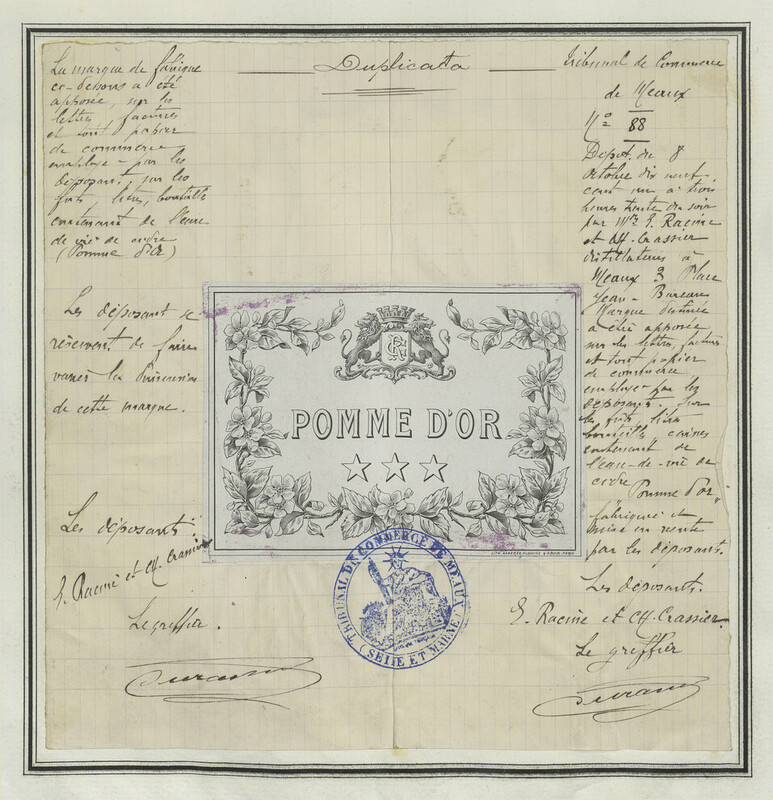 Duplicata
La marque de fabrique
ci-dessous a été
apposée, sur les
lettres, factures
et tout papier
de commerce
employé par les
déposant, sur les
futs, litres, bouteille
contenant de l'eau
de vie de cidre
(Pomme d'Or)
Les déposant se
réservent de faire
varier la dimension
de cette marque.
Les déposants
E. Racine et Ch. Crassier
Le greffier.
POMME D'OR
TRIBUNAL DE COMMERCE DE MEAUX
(SEINE ET MARNE)
Tribunal de Commerce
de Meaux
No 88
Dépot du 8
Octobre dix neuf
cent un à trois
heures trente du soir
par Mrs E. Racine
et Ch. Crassier
distillateurs à
Meaux 3 Place
Jean-Bureau
Marque destinée
à être apposée
sur les lettres, factures
et tout papier
de commerce
employé par les
déposants. Sur
les futs litres
bouteilles caisses
contenant de
l'eau-de-vie de
cidre
"Pomme d'or"
fabriquée et
mise en vente
par les déposants.
Les déposants.
E. Racine et Ch. Crassier
Le greffier